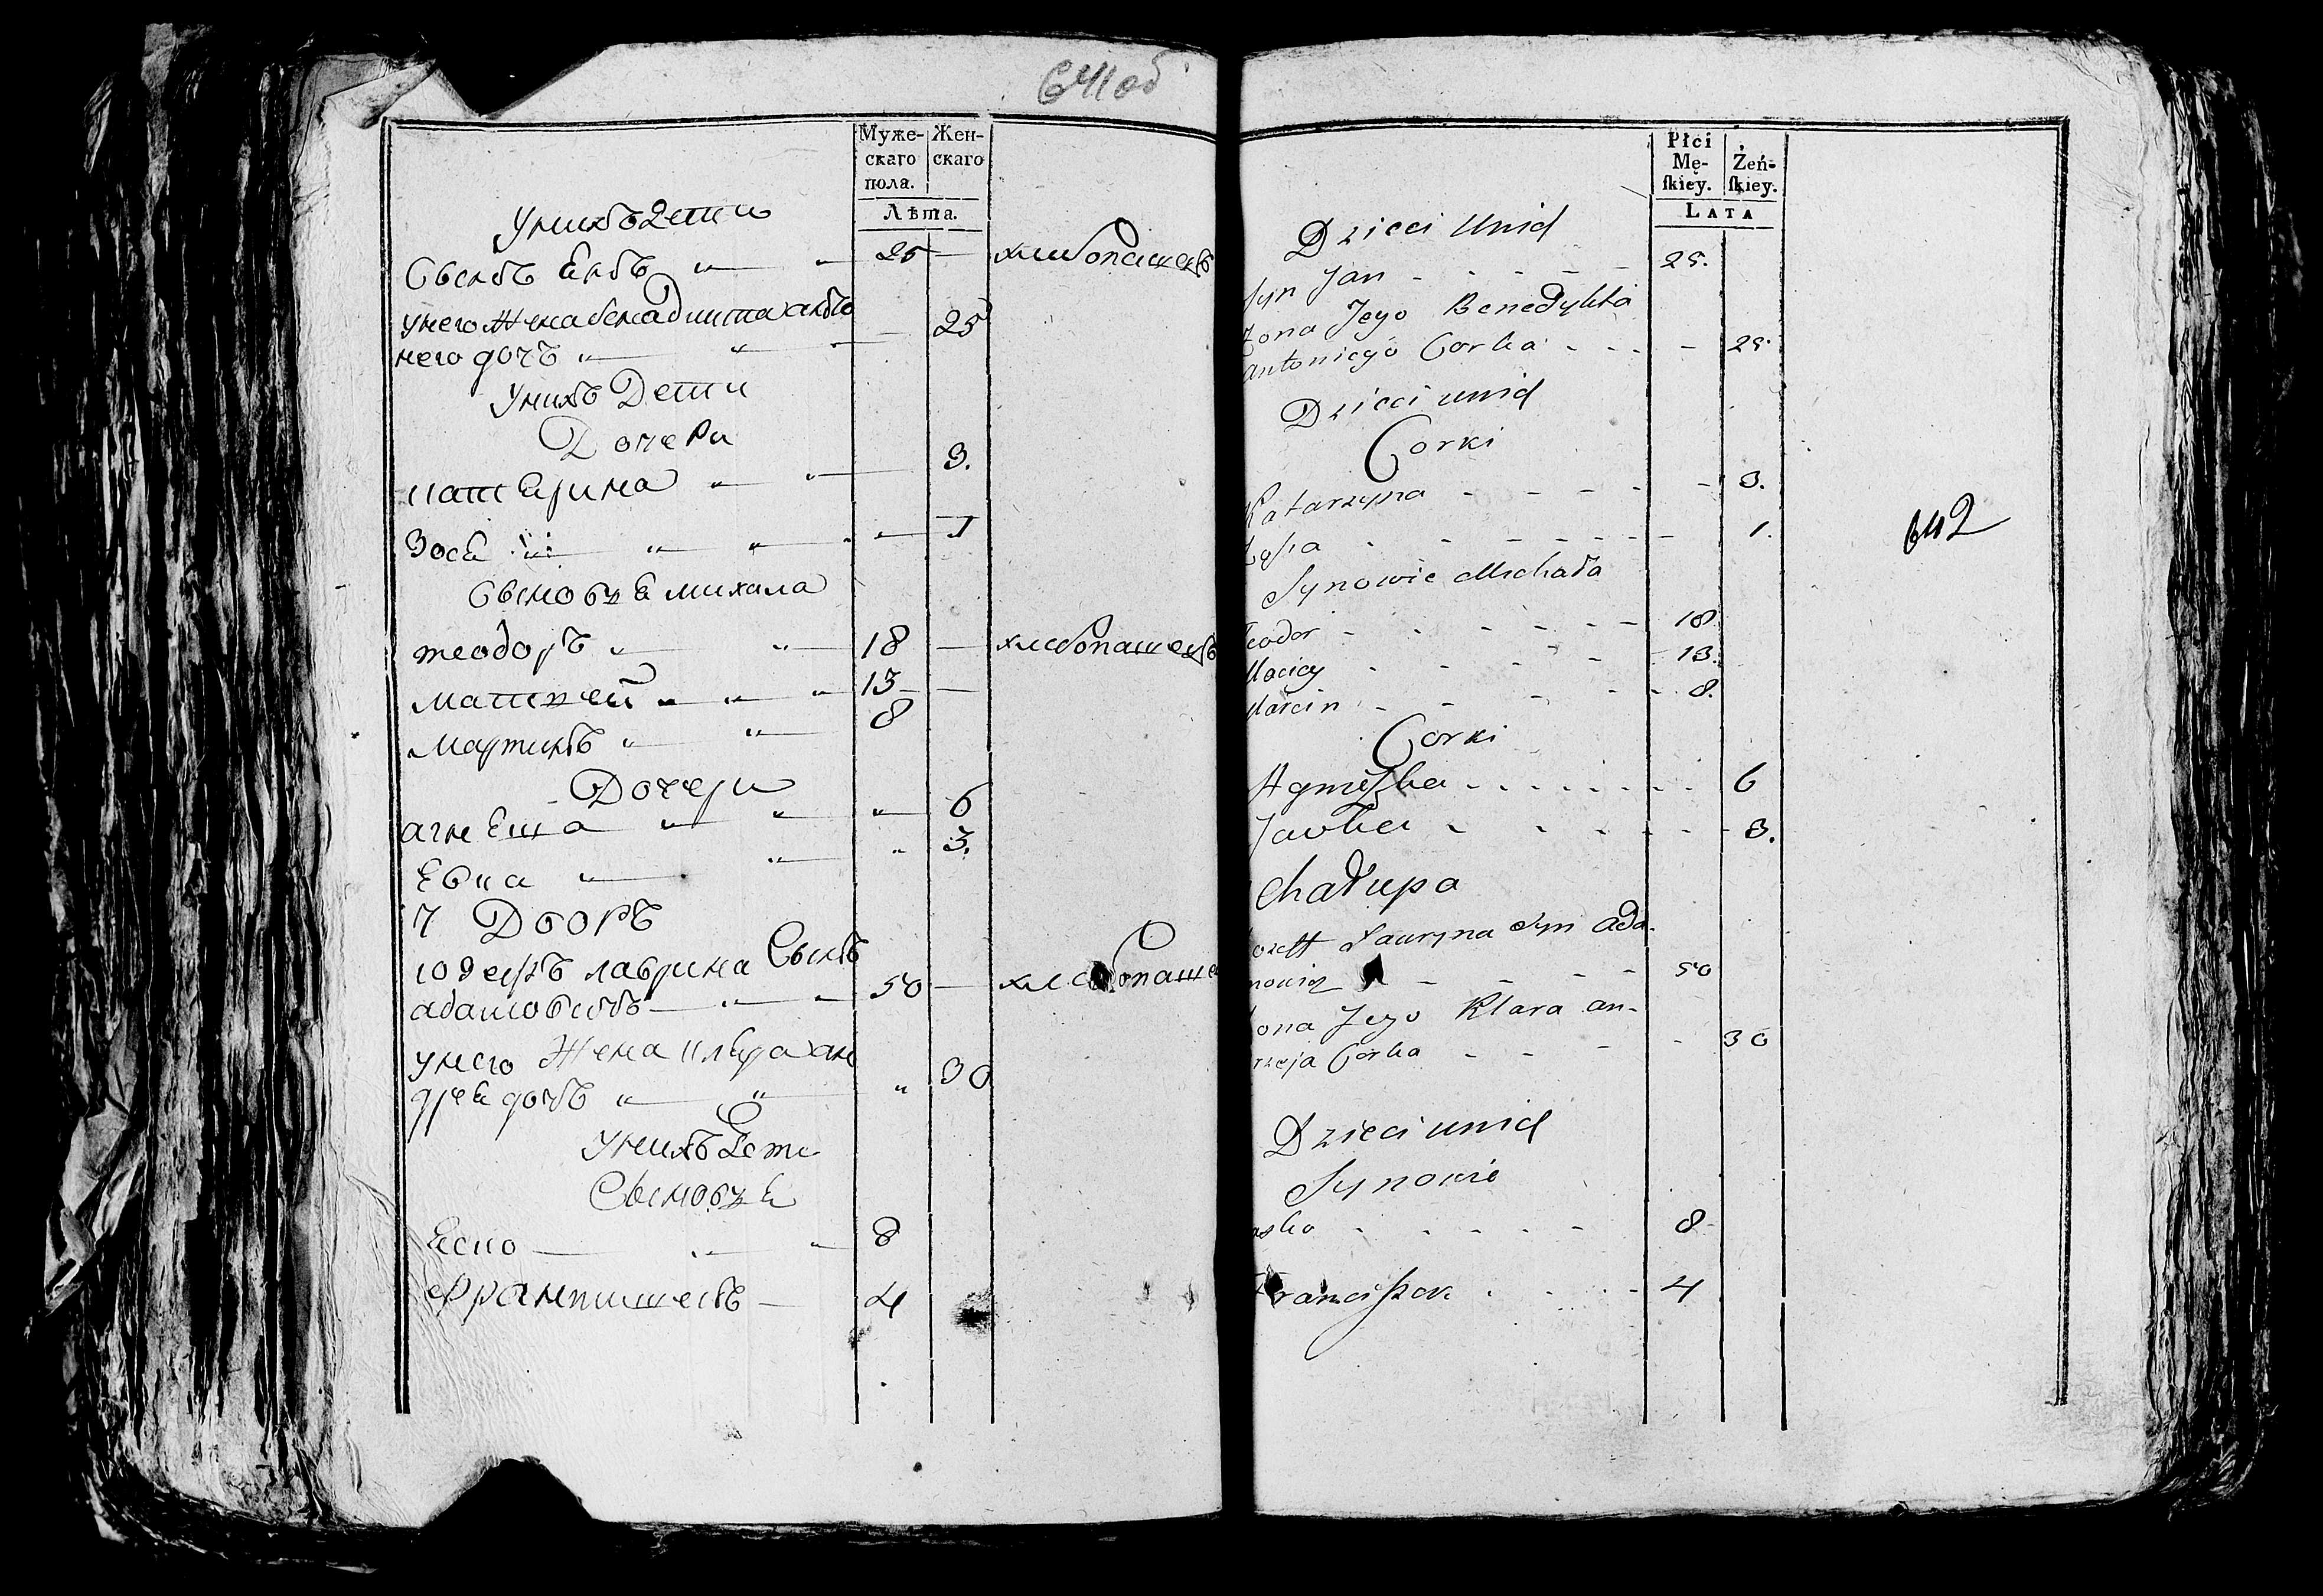 641 об
Муже-
скаго
пола.
Жен-
скаго
Лѣта.
Унихъ Дети
Сынъ Енъ 25 — хлебопашецъ
Унего Жена бенадикта анто
него дочъ 25
Унихъ Дети
Дочери
катерина 3.
Зося 1
Сыновья михала
теодоръ 18 — хлебопашецъ
матвей 13 —
Мартинъ 8
Дочери
агнешка 6
Евка 3.
7 Дворъ
юзефъ лаврина Сынъ
адамовичъ 50 — хлебопаше
унего Жена клара ан
дрея дочъ 30
Унихъ Дети
Сыновья
Еско 8
Францишекъ 4
Płci
Mę-
ſkiey.
Żeń-
ſkiey.
LATA
Dzieci Unich
Syn Jan 25.
Żona Jego Benedykta
Antoniego Corka 25.
Dzieci unich
Corki
Katarzyna 3.
Zofia 1.
Synowie Michała
Teodor 18
Maciey 13.
Marcin 8.
Corki
Agnieszka 6
Jewka 3.
Chałupa
ozeff Lauryna Syn Ada-
mowicz 50
ona Jego Klara an-
rzeja Corka 30
Dzieci unich
Synowie
asko 8
Franciszek 4
642